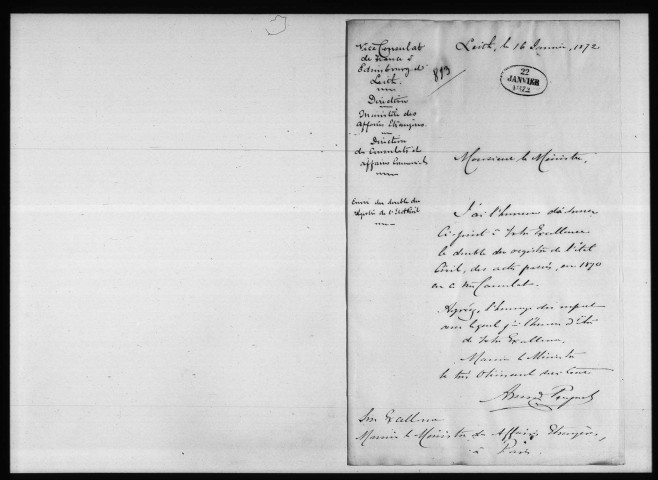 Vice Consulat
de France à
Edimbourg et
Leith.
Direction
Ministère des
Affaires Etrangères.
Direction
des Consulats et
affaires Commerciales
Envoi du double du
registre de l'Etat Civil
Leith, le 16 Janvier, 1872
813
22
JANVIER
1872
Monsieur le Ministre,
J'ai l'honneur d'adresser
Ci-joint à Votre Excellence
le double du registre de l'état
Civil, des actes passés, en 1870
en ce Vice Consulat.
Agréez, l'hommage du respect
avec lequel j'ai l'honneur d'être
de Votre Excellence,
Monsieur le Ministre
le très Obéissant Serviteur
Son Excellence
Monsieur le Ministre des Affaires Etrangères,
à Paris